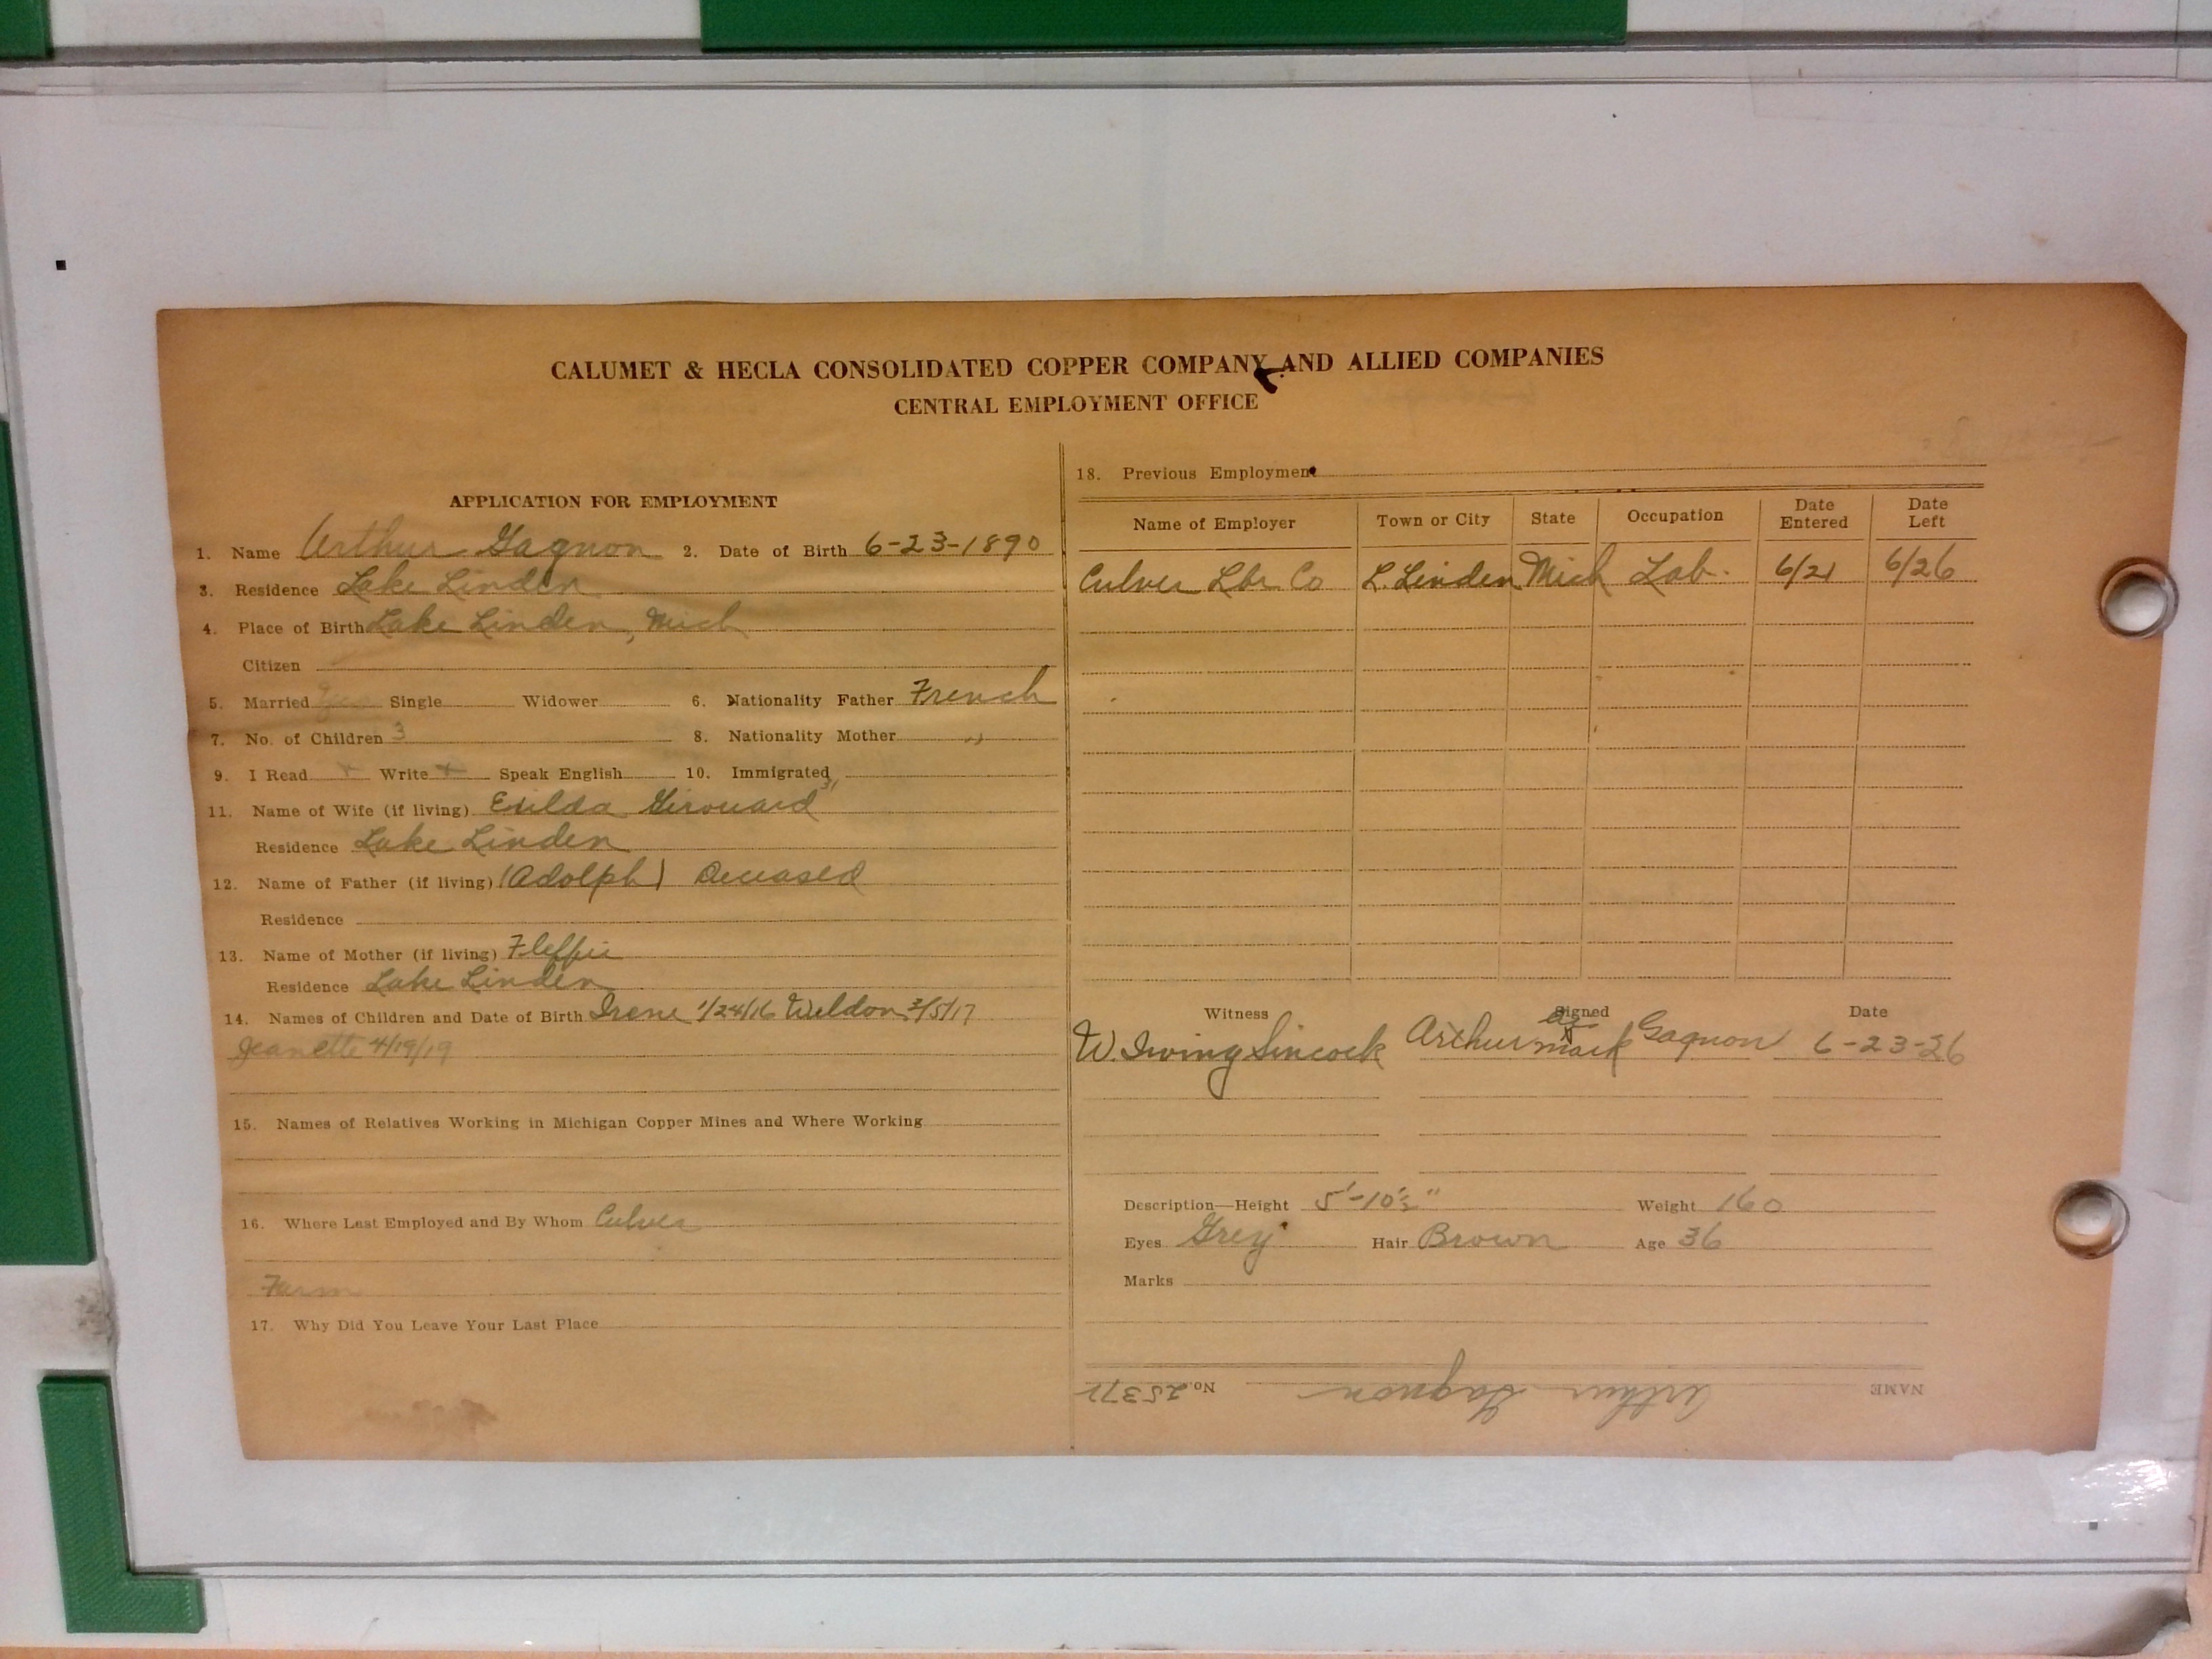 CALUMET & HECLA CONSOLIDATED COPPER COMPANY AND ALLIED COMPANIES
CENTRAL EMPLOYMENT OFFICE
APPLICATION FOR EMPLOYMENT
1. Name Arthur Gagnon 2. Date of Birth 6-23-1890
3. Residence Lake Linden
4. Place of Birth Lake Linden, Mich
Citizen
5. Married Yes Single Widower 6. Nationality Father French
7. No. of Children 3 8. Nationality Mother "
9. I Read x Write x Speak English 10. Immigrated
11. Name of Wife (if living) Exilda Girouard 31
Residence Lake Linden
12. Name of Father (if living) (Adolph) Deceased
Residence
13. Name of Mother (if living)
Residence Lake Linden
14. Names of Children and Date of Birth Irene 1/24/16 Weldon 3/5/17
Jeanette 4/19/19
15. Names of Relatives Working in Michigan Copper Mines and Where Working
16. Where Last Employed and By Whom Culver
Farm
17. Why Did You Leave Your Last Place
18. Previous Employment
Name of Employer Town or City State Occupation Date Entered Date Left
Culver Lbr Co L. Linden Mich Lab. 6/21 6/26
Witness Signed Date
W. Irving Sincock Arthur X mark Gagnon 6-23-26
Description—Height 5'-10½" Weight 160
Eyes Grey Hair Brown Age 36
Marks
NAME Arthur Gagnon No. 25371